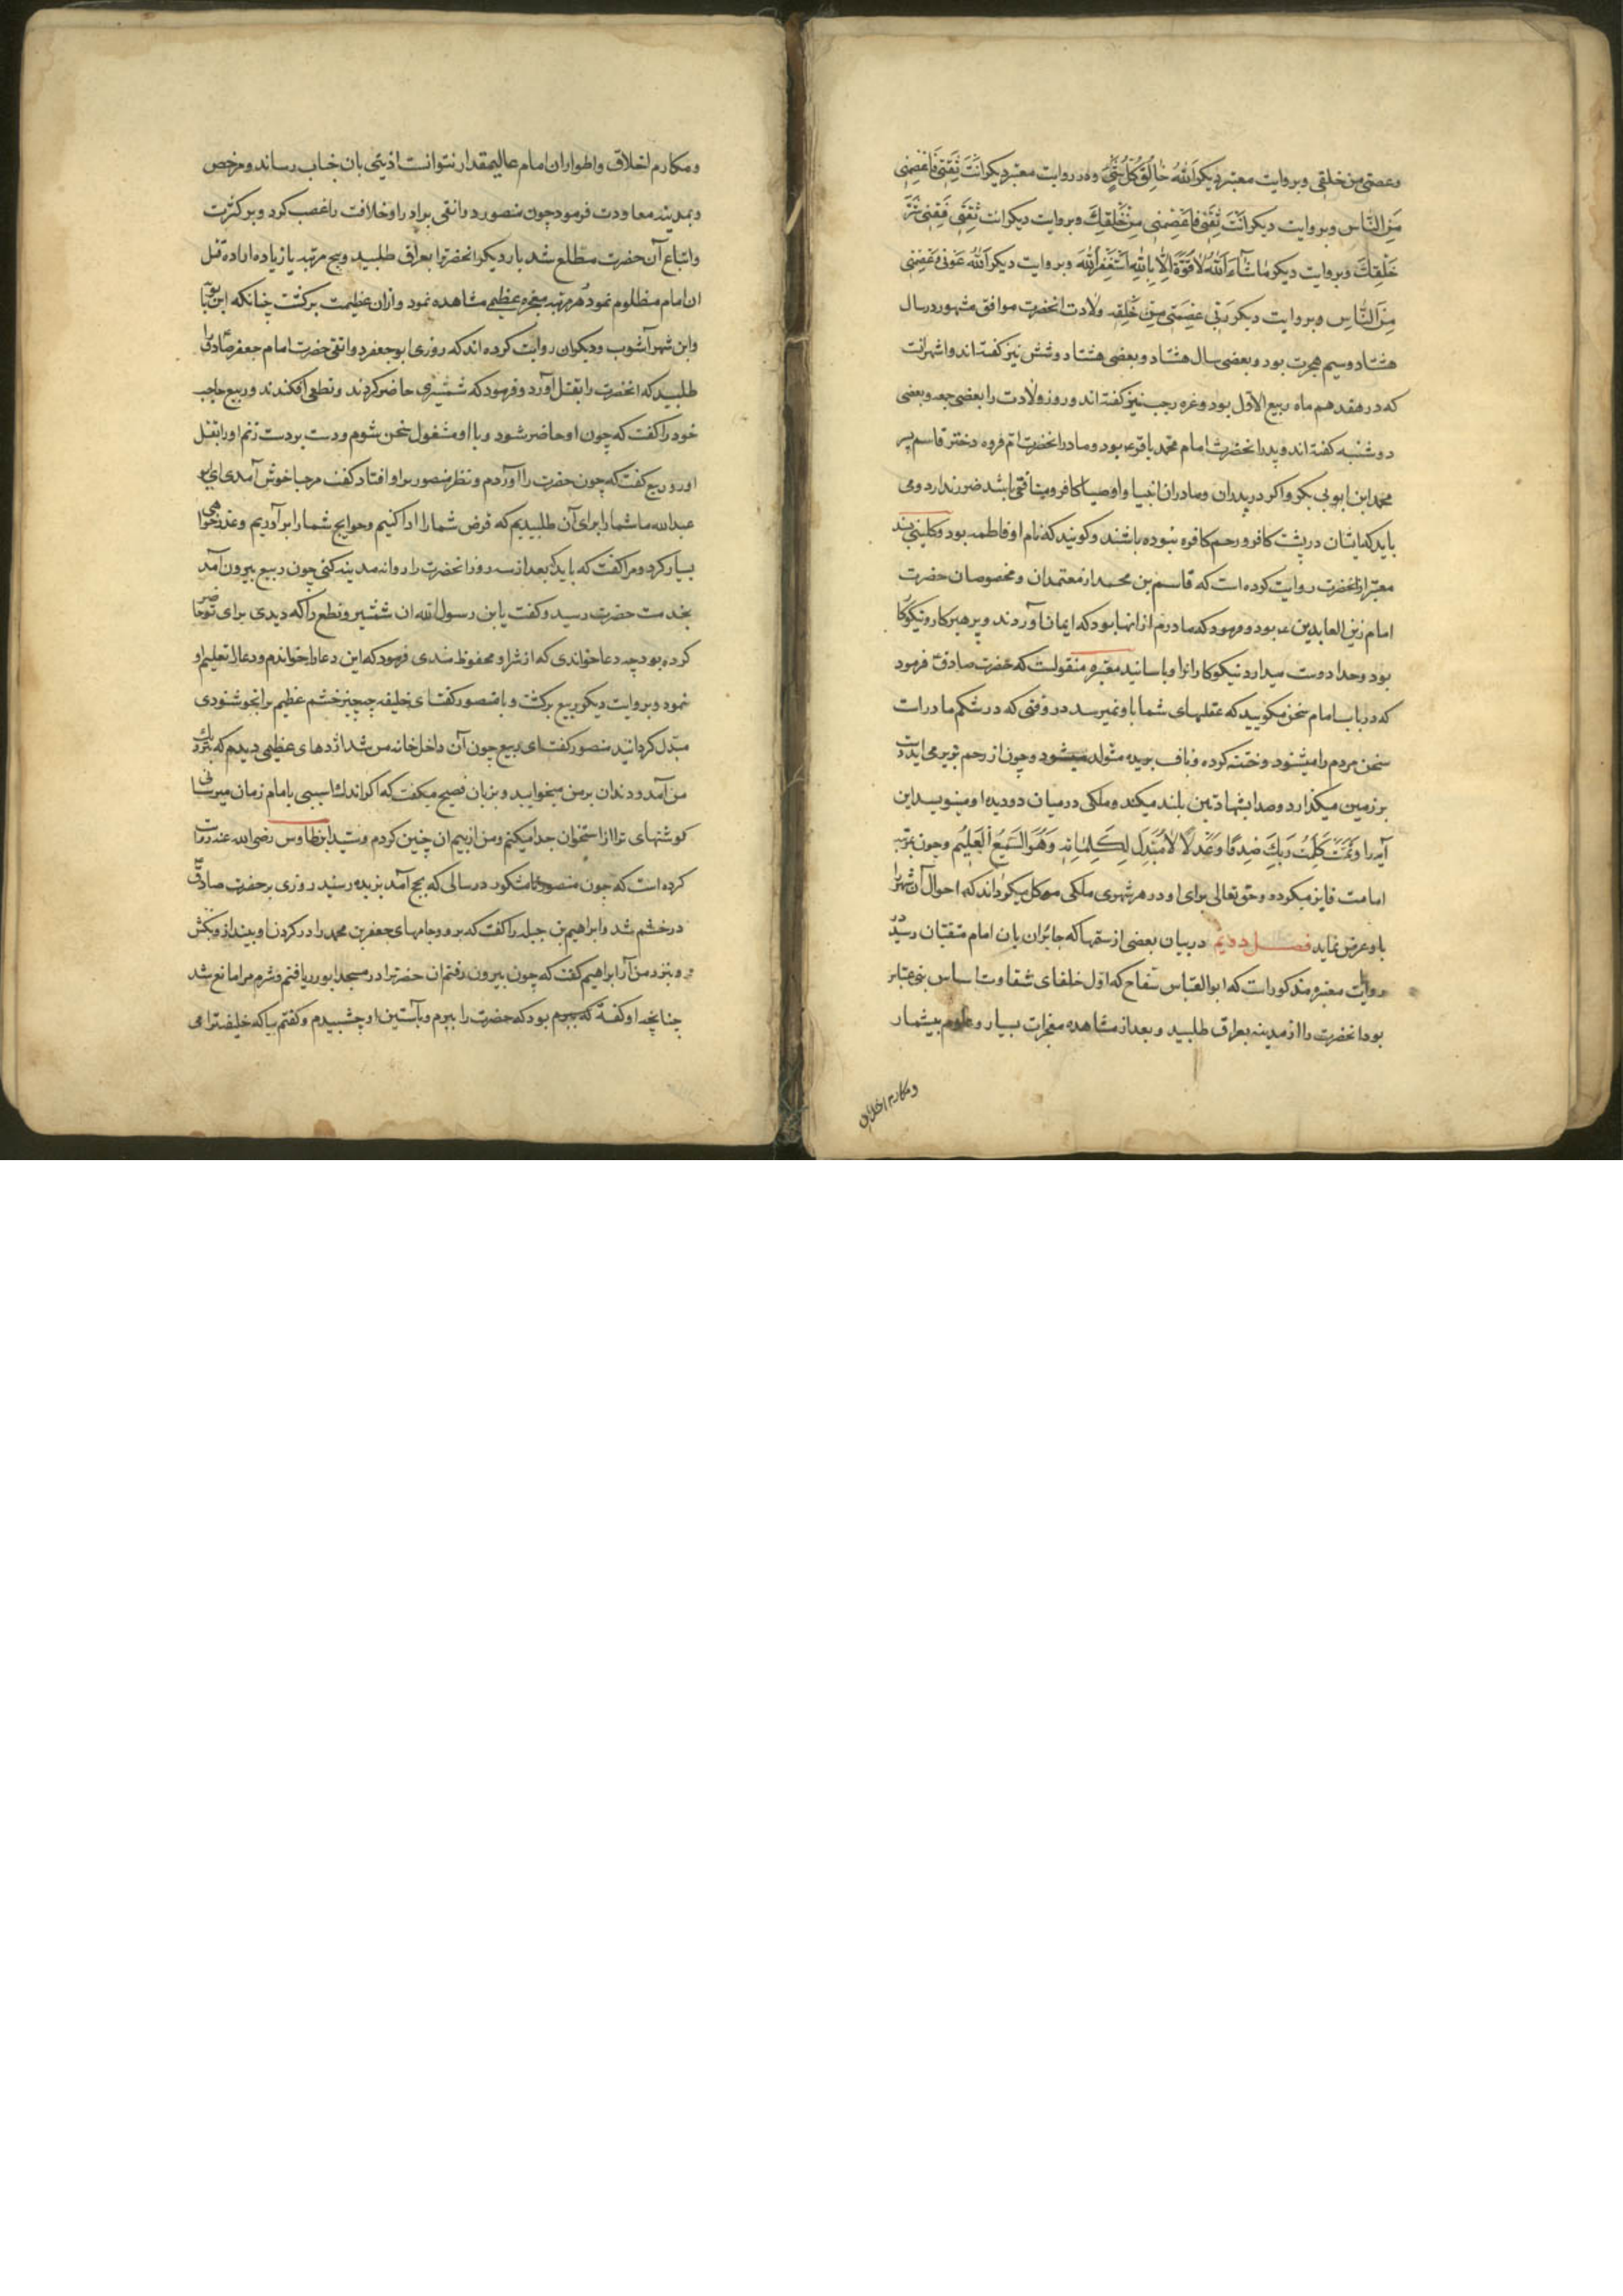 وعصمتی من خلقی وبروایت معتبر دیکر اَللّهُ خالِقُ كُلِّ شَیْءٍ ودر روایت معتبر دیکر اَنْتَ ثِقَتی فَاعْصِمْنی
مِنَ النّاس وبروایت دیکر اَنْتَ ثِقَتی فَاعْصِمْنی مِنْ خَلْقِكَ وبروایت دیکر انت ثِقَتی فَقِنی شَرَّ
خَلْقِكَ وبروایت دیکر ماشآءَ اللّهُ لاقُوَّةَ اِلاّ بِاللّهِ اَسْتَغْفِرُ اللّهَ وبروایت دیکر اَللّهُ عَوْنی وَعِصْمَتی
مِنَ النّاسِ وبروایت دیکر رَبّی عَصَمَنی مِنْ خَلْقِه ولادت انحضرت موافق مشهور در سال
هشتاد وسیم هجرت بود وبعضی سال هشتاد وبعضی هشتاد وشش نیز کفته اند واشهر انست
که در هفدهم ماه ربیع الاوّل بود وغره رجب نیز کفته اند وروز ولادت را بعضی جمعه وبعضی
دوشنبه کفته اند وپدر انحضرت امام محمد باقر ع بود ومادر انحضرت امّ فروه دختر قاسم پسر
محمد ابن ابو بی بکر واکر در پدران ومادران انبیا واوصیا کافر ومنافقی باشد ضرر ندارد ومی
باید که ایشان در پشت کافر ورحم کافره نبوده باشند وکویند که نام او فاطمه بود وکلینی بسند
معتبر از انحضرت روایت کرده است که قاسم بن محمد از معتمدان ومخصوصان حضرت
امام زین العابدین ع بود وفرمود که مادرم از انها بود که ایمان آوردند وپرهیزکار ونیکوکار
بود وخدا دوست میدارد نیکوکارانرا وباسانید معتبره منقولست که حضرت صادق فرمود
که در باب امام سخن مکویید که عقلهای شما باو نمیرسد در وقتی که در شکم مادر است
سخن مردم را میشنود وختنه کرده وناف بریده متولد میشود وچون از رحم بزیر می آید دست
بر زمین میکذارد وصدا بشهادتین بلند میکند وملکی در میان دو دیده او مینویسد این
آیه را وَتَمَّتْ كَلِمَتُ رَبِّكَ صِدْقًا وَعَدْلًا لامُبَدِّلَ لِكَلِماتِه وَهُوَ السَّمیعُ الْعَلیمُ وچون بمرتبه
امامت فایز میکردد وحق تعالی برای او در هر شهری ملکی موکل میکرداند که احوال آن شهر را
باو عرض نماید فصل دویم در بیان بعضی از ستمها که جائران بان امام متقیان رسید در
روایت معتبره مذکور است که ابو العباس سفاح که اوّل خلفای شقاوت اساس بنی عباس
بود انحضرت را از مدینه بعراق طلبید وبعد از مشاهده معجزات بسیار وعلوم بیشمار
ومکارم اخلاق
ومکارم اخلاق واطوار ان امام عالیمقدار نتوانست اذیتی بان جناب رساند ومرخص
وبمدینه معاودت فرمود چون منصور دوانقی برادر او خلافت را غصب کرد وبر کثرت
واتباع آن حضرت مطلع شد بار دیکر انحضرترا بعراق طلبید وپنج مرتبه یا زیاده اراده قتل
ان امام مظلوم نمود هر مرتبه معجزه عظیمی مشاهده نمود واز ان عزیمت برکشت چنانکه ابن بابویه
وابن شهر آشوب ودیکران روایت کرده اند که روزی ابو جعفر دوانقی حضرت امام جعفر صادق را
طلبید که انحضرت را بقتل آورد وفرمود که شمشیری حاضر کردند ونطعی افکندند وربیع حاجب
خود را کفت که چون او حاضر شود وبا او مشغول سخن شوم ودست بر دست زنم او را بقتل
اور وربیع کفت که چون حضرت را آوردم ونظر منصور بر او افتاد کفت مرحبا خوش آمدی ای ابو
عبدالله ما شما را برای آن طلبیدیم که قرض شما را ادا کنیم وحوایج شما را بر آوریم وعذر خواهی
بسیار کرد ومرا کفت که باید که بعد از سه روز انحضرت را روانه مدینه کنی چون ربیع بیرون آمد
بخدمت حضرت رسید وکفت یابن رسول الله ان شمشیر ونطع را که دیدی برای تو حاضر
کرده بود چه دعا خواندی که از شر او محفوظ شدی فرمود که این دعا را خواندم ودعا را تعلیم او
نمود وبروایت دیکر ربیع برکشت وبا منصور کفت ای خلیفه چه چیز خشم عظیم ترا بخوشنودی
مبدّل کردانید منصور کفت ای ربیع چون آن داخل خانه من شد اژدهای عظیمی دیدم که بنزدیك
من آمد ودندان بر من میخوایید وبزبان فصیح میکفت که اکر اندك اسیبی بامام زمان میرسانی
کوشتهای ترا از استخوان جدا میکنم ومن از بیم ان چنین کردم وسید ابن طاوس رضی الله عنه روایت
کرده است که چون منصور در سالی که بحج آمد بربده رسید روزی بر حضرت صادق
در خشم شد وابراهیم بن جبله را کفت که برو وجامهای جعفر بن محمد را در کردن او بینداز وبکش
وبنزد من آر ابراهیم کفت که چون بیرون رفتم ان حضرترا در مسجد ابوذر یافتم وشرم مرا مانع شد
چنانچه او کفته که ببرم بود که حضرت را ببرم وبآستین او چسبیدم وکفتم بیا که خلیفه ترا می